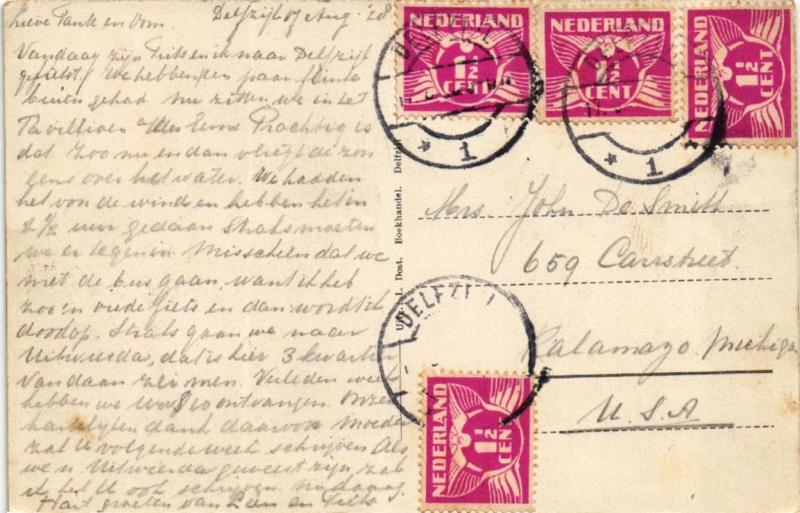 Lieve Tante en Oom. Delfzijl 17 Aug. '28
Vandaag zijn Fiets en ik naar Delfzijl
gefietst. We hebben een paar flinke
buien gehad. Nu zitten we in het
Pavilljoen a/d Eems. Prachtig is
dat zoo nu en dan vliegt de zon
eens over het water. We hadden
het voor de wind en hebben het in
2 1/2 uur gedaan. Straks moeten
we er tegen in. Misschien dat we
met de bus gaan, want ik heb
zoo'n oude fiets en dan word ik
doodop. Straks gaan we naar
Uitwierda, dat is hier 3 kwartier
vandaan zei men. Verleden week
hebben we ontvangen. Onze
hartelijken dank daarvoor. Moeder
zal U volgende week schrijven. Als
we n. Uitwierda geweest zijn, zal
ik het U ook schrijven.
Hart groeten van en
NEDERLAND
1½
CENT
NEDERLAND
1½
CENT
NEDERLAND
1½
CENT
1
1
Boekhandel. Delfzijl
Mrs. John De Smith
659 Carrstreet.
Kalamazo. Michigan
U.S.A
DELFZIJL
NEDERLAND
1½
CENT